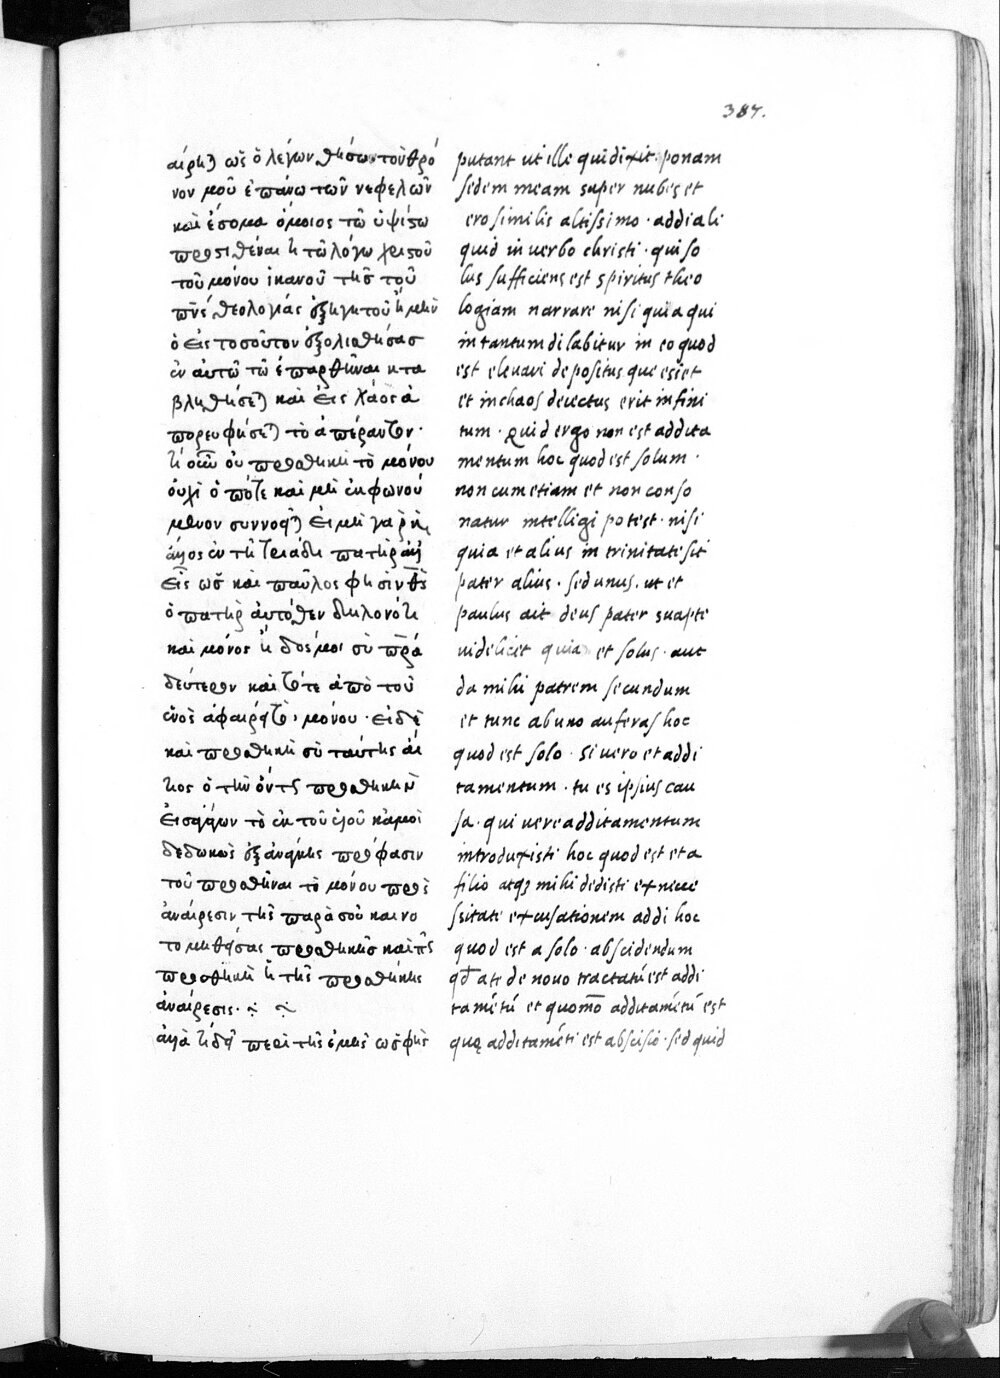 387.
ὡς ὁ λέγων θήσω τὸν θρό
νον μοῦ ἐπάνω τῶν νεφελῶν
καὶ ἔσομαι ὅμοιος τῶ ὑψίστω
προστιθέναι τῶ λόγω χριστοῦ
τοῦ μόνου ἱκανοῦ τῆς τοῦ
θεολογίας
ὁ εἰς τοσοῦτον ἐξολισθήσας
ἐν αὐτῶ τῶ ἐπαρθῆναι κατα
βληθήσεται καὶ εἰς χάος ἀ
τὸ ἀπέραντον·
οὐ προσθήκη τὸ μόνου
καὶ μὴ ἐκφωνού
μενον εἰ μὴ γὰρ
ἄλλος ἐν τῆ τριάδι πατὴρ
εἷς ὡς καὶ παῦλος φησὶν θς
ὁ πατὴρ αὐτόθεν δηλονότι
καὶ μόνος ἢ δός μοι σὺ πρα
δεύτερον καὶ τότε ἀπὸ τοῦ
ἑνὸς μόνου· εἰ δὲ
καὶ προσθήκη σὺ ταύτης αἴ
τιος ὁ τὴν ὄντως προσθήκην
τὸ ἐκ τοῦ υἱοῦ κἀμοὶ
δεδωκὼς ἐξ ἀνάγκης πρόφασιν
τοῦ προσθῆναι τὸ μόνου πρὸς
ἀναίρεσιν τῆς παρὰ σοῦ καινο
προσθήκης καὶ πῶς
προσθήκη ἡ τῆς προσθήκης
ἀναίρεσις·
ἀλλὰ τί δεῖ περὶ τῆς ἐμῆς
putant ut ille qui dixit· ponam
sedem meam super nubes et
ero similis altissimo· addi ali
quid in uerbo christi· qui so
lus sufficiens est spiritus theo
logiam narrare nisi quia qui
in tantum dilabitur in eo quod
est eleuari depositus que esset
et in chaos deiectus erit infini
tum· quid ergo non est addita
mentum hoc quod est solum·
non cum etiam et non conso
natur intelligi potest· nisi
quia et alius in trinitate sit
pater alius· sed unus· ut et
paulus ait deus pater suapte
uidelicet quia et solus· aut
da mihi patrem secundum
et tunc ab uno auferas hoc
quod est solo· Si uero et addi
tamentum· tu es ipsius cau
sa· qui uere additamentum
introduxisti hoc quod est et a
filio atq3 mihi dedisti ex nece
ssitate excusationem addi hoc
quod est a solo· abscidendum
qd a te de nouo tractatū est addi
tamētū et quomo additamētū est
quę additamēti est abscisio· sed quid